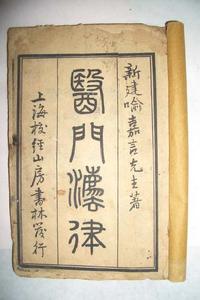 新建喻嘉言先生著
醫門法律
上海校經山房書林發行